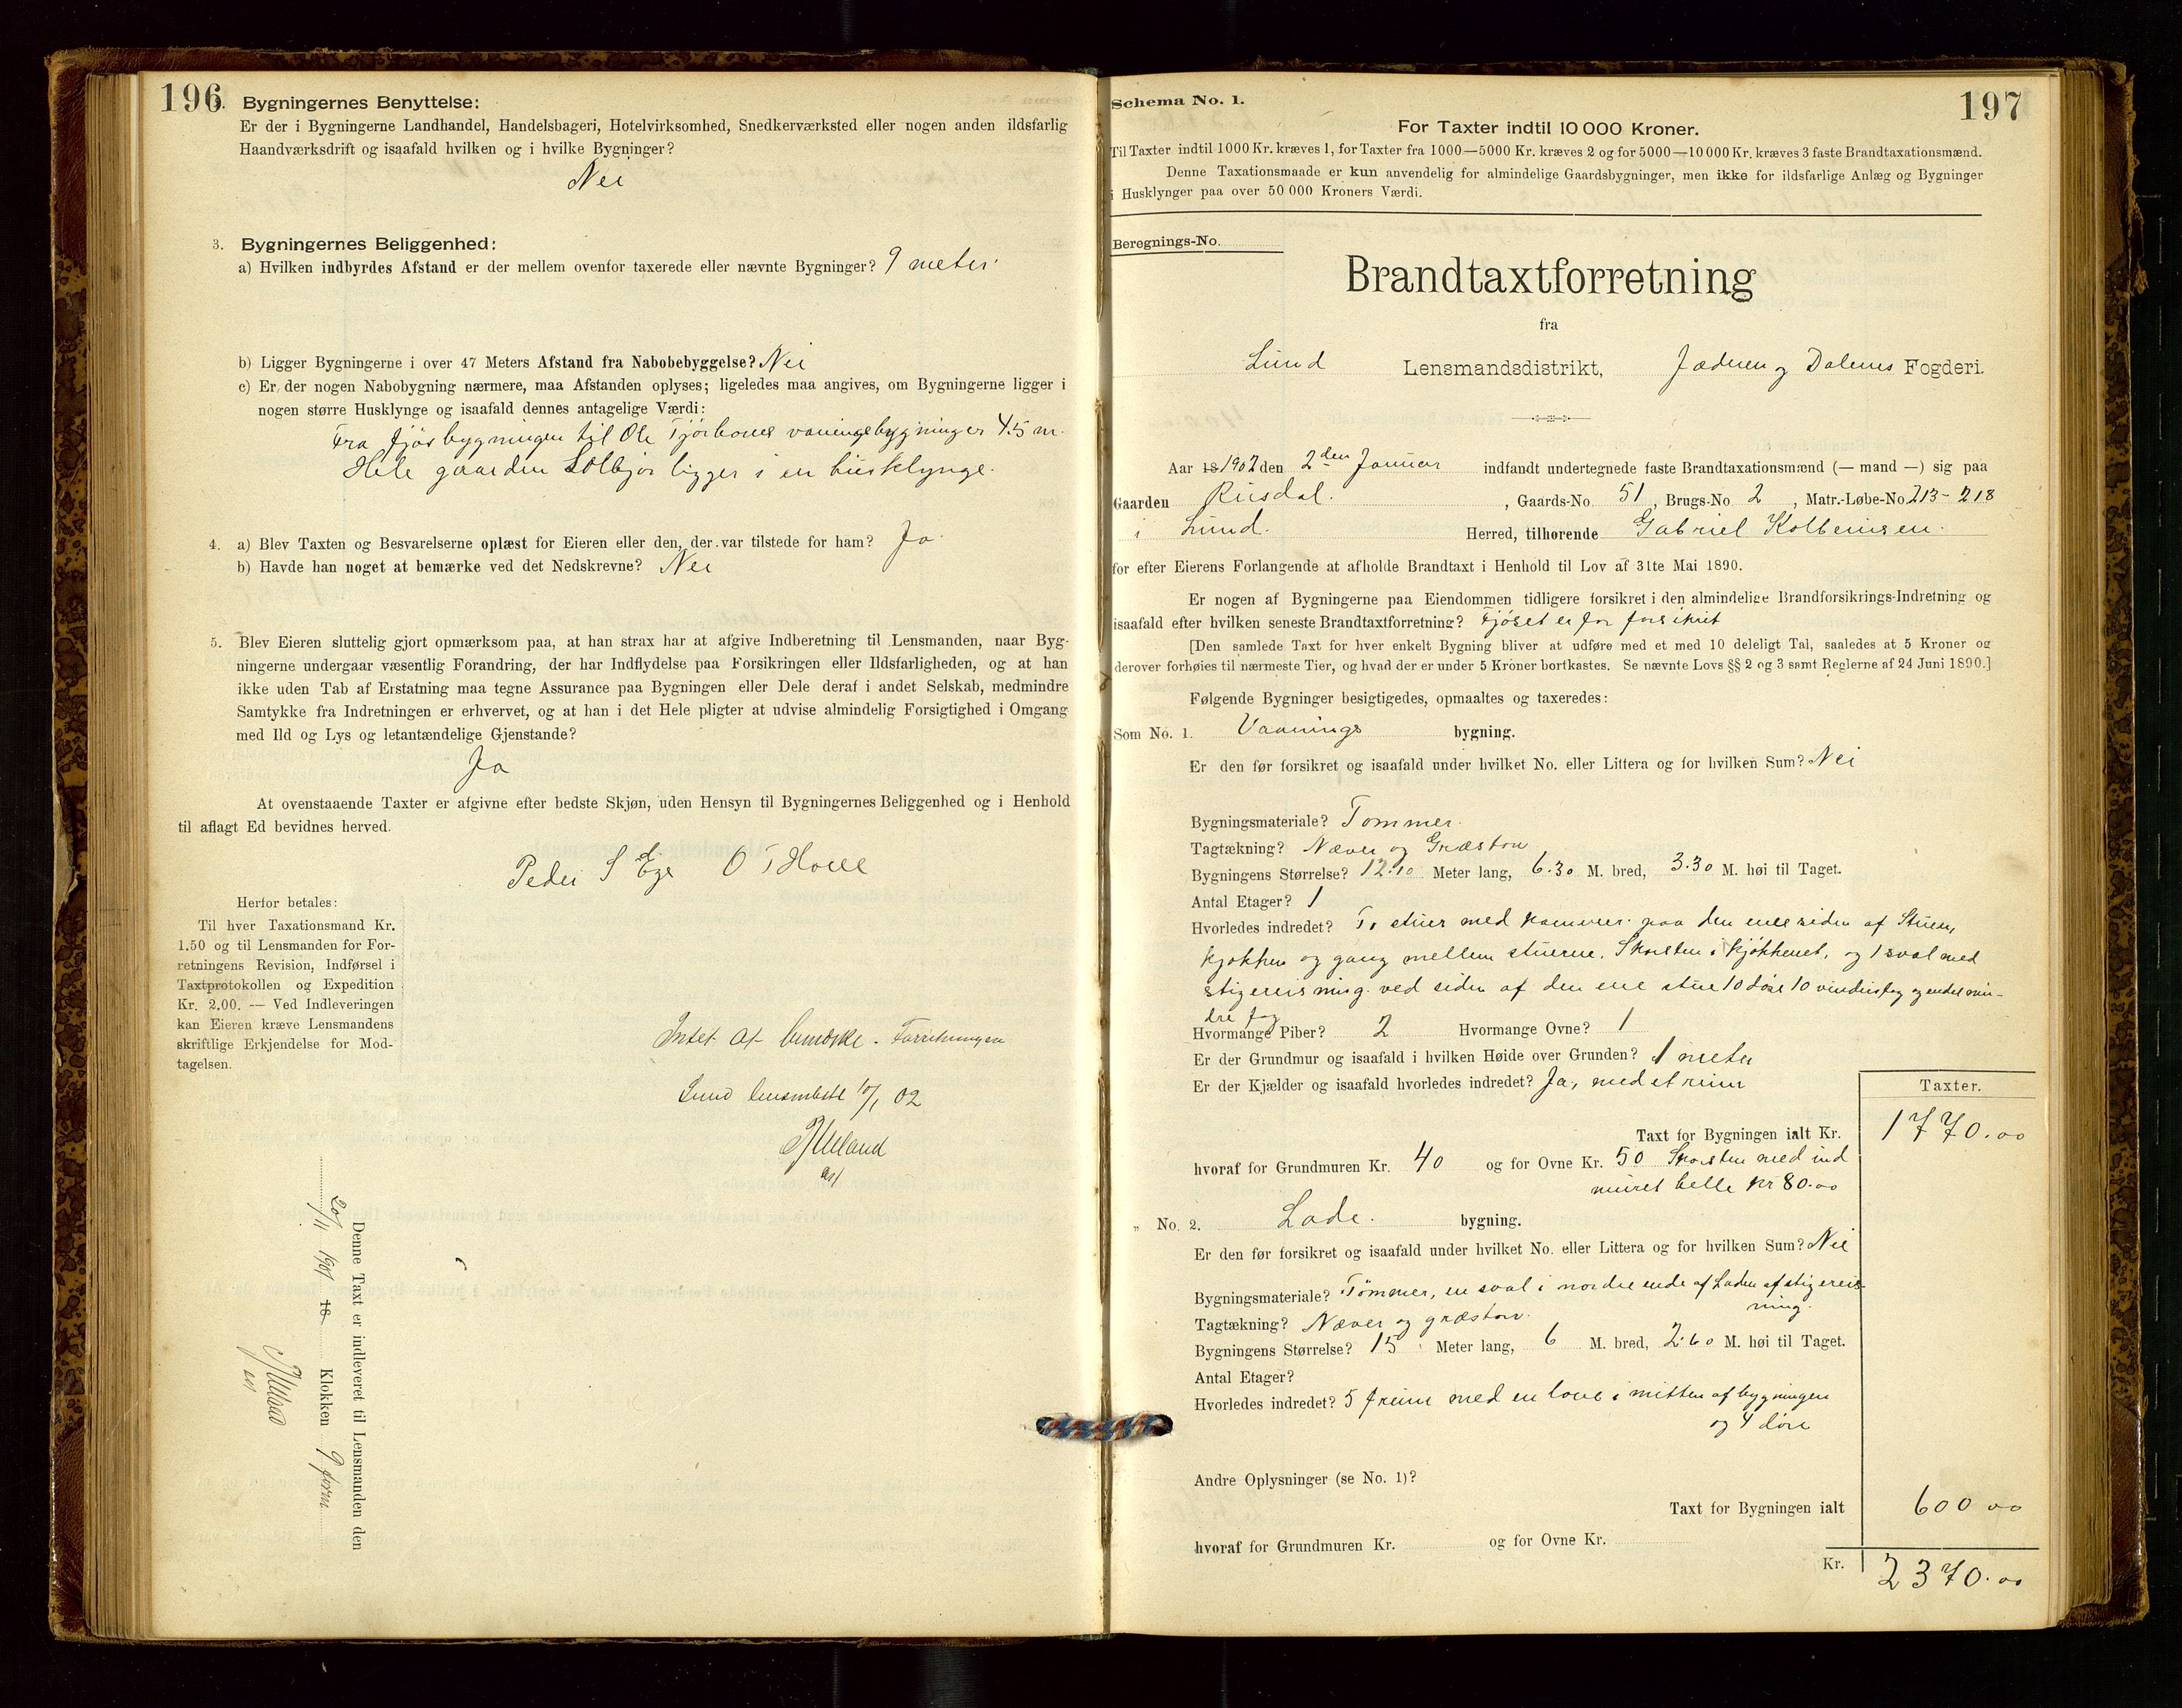 196
Bygningernes Benyttelse:
Er der i Bygningerne Landhandel, Handelsbageri, Hotelvirksomhed, Snedkerværksted eller nogen anden ildsfarlig
Haandværksdrift og isaafald hvilken og i hvilke Bygninger?
Nei
3. Bygningernes Beliggenhed:
a) Hvilken indbyrdes Afstand er der mellem ovenfor taxerede eller nævnte Bygninger? 9 meter
b) Ligger Bygningerne i over 47 Meters Afstand fra Nabobebyggelse? Nei
c) Er der nogen Nabobygning nærmere, maa Afstanden oplyses; ligeledes maa angives, om Bygningerne ligger i
nogen større Husklynge og isaafald dennes antagelige Værdi:
Fra fjøsbygningen til Ole vaaningsbygning er 4.5 m.
Hele gaarden ligger i en husklynge.
4. a) Blev Taxten og Besvarelserne oplæst for Eieren eller den, der var tilstede for ham? Ja
b) Havde han noget at bemærke ved det Nedskrevne? Nei
5. Blev Eieren sluttelig gjort opmærksom paa, at han strax har at afgive Indberetning til Lensmanden, naar Byg-
ningerne undergaar væsentlig Forandring, der har Indflydelse paa Forsikringen eller Ildsfarligheden, og at han
ikke uden Tab af Erstatning maa tegne Assurance paa Bygningen eller Dele deraf i andet Selskab, medmindre
Samtykke fra Indretningen er erhvervet, og at han i det Hele pligter at udvise almindelig Forsigtighed i Omgang
med Ild og Lys og letantændelige Gjenstande?
Ja
At ovenstaaende Taxter er afgivne efter bedste Skjøn, uden Hensyn til Bygningernes Beliggenhed og i Henhold
til aflagt Ed bevidnes herved.
Peder S Ege O T Hove
Herfor betales:
Til hver Taxationsmand Kr.
1.50 og til Lensmanden for For-
retningens Revision, Indførsel i
Taxtprotokollen og Expedition
Kr. 2.00. — Ved Indleveringen
kan Eieren kræve Lensmandens
skriftlige Erkjendelse for Mod-
tagelsen.
Intet at bemærke. Forretningen
Lund 10/1 02
Denne Taxt er indleveret til Lensmanden den
20/11 1901 18 Klokken 9 form
Schema No. 1.
197
For Taxter indtil 10 000 Kroner.
Til Taxter indtil 1000 Kr. kræves 1, for Taxter fra 1000—5000 Kr. kræves 2 og for 5000—10 000 Kr. kræves 3 faste Brandtaxationsmænd.
Denne Taxationsmaade er kun anvendelig for almindelige Gaardsbygninger, men ikke for ildsfarlige Anlæg og Bygninger
i Husklynger paa over 50 000 Kroners Værdi.
Beregnings-No.
Brandtaxtforretning
fra
Lund Lensmandsdistrikt, Jæderen og Dalernes Fogderi.
Aar 18 1902 den 2den Januar indfandt undertegnede faste Brandtaxationsmænd (— mand —) sig paa
Gaarden Rusdal. , Gaards-No. 51, Brugs-No. 2, Matr.-Løbe-No. 213-218
i Lund. Herred, tilhørende Gabriel Kolbeinsen.
for efter Eierens Forlangende at afholde Brandtaxt i Henhold til Lov af 31te Mai 1890.
Er nogen af Bygningerne paa Eiendommen tidligere forsikret i den almindelige Brandforsikrings-Indretning og
isaafald efter hvilken seneste Brandtaxtforretning? Fjøset er før forsikret
[Den samlede Taxt for hver enkelt Bygning bliver at udføre med et med 10 deleligt Tal, saaledes at 5 Kroner og
derover forhøies til nærmeste Tier, og hvad der er under 5 Kroner bortkastes. Se nævnte Lovs §§ 2 og 3 samt Reglerne af 24 Juni 1890.]
Følgende Bygninger besigtigedes, opmaaltes og taxeredes:
Som No. 1. Vaanings bygning.
Er den før forsikret og isaafald under hvilket No. eller Littera og for hvilken Sum? Nei
Bygningsmateriale? Tømmer.
Tagtækning? Næver og Græstorv
Bygningens Størrelse? 12.10 Meter lang, 6.30 M. bred, 3.30 M. høi til Taget.
Antal Etager? 1
Hvorledes indredet? To stuer med kammer paa den ene siden af Stuen,
kjøkken og gang mellem stuerne. Skorsten i kjøkkenet, og 1 sval med
stigereisning ved siden af den ene stue 10 døre 10 vindusfag og endel min-
dre fag
Hvormange Piber? 2 Hvormange Ovne? 1
Er der Grundmur og isaafald i hvilken Høide over Grunden? 1 meter
Er der Kjælder og isaafald hvorledes indredet? Ja, med et reium
Taxter.
Taxt for Bygningen ialt Kr. 1770.00
hvoraf for Grundmuren Kr. 40 og for Ovne Kr. 50 Skorsten med ind
muret helle kr 80.00
„ No. 2. Lade. bygning.
Er den før forsikret og isaafald under hvilket No. eller Littera og for hvilken Sum? Nei
Bygningsmateriale? Tømmer, en sval i nordre ende af Laden af stigereis-
ning.
Tagtækning? Næver og græstorv.
Bygningens Størrelse? 15 Meter lang, 6 M. bred, 2.60 M. høi til Taget.
Antal Etager?
Hvorledes indredet? 5 med en love i midten af bygningen
og 4 døre
Andre Oplysninger (se No. 1)?
Taxt for Bygningen ialt 600 00
hvoraf for Grundmuren Kr. og for Ovne Kr.
Kr. 2370.00